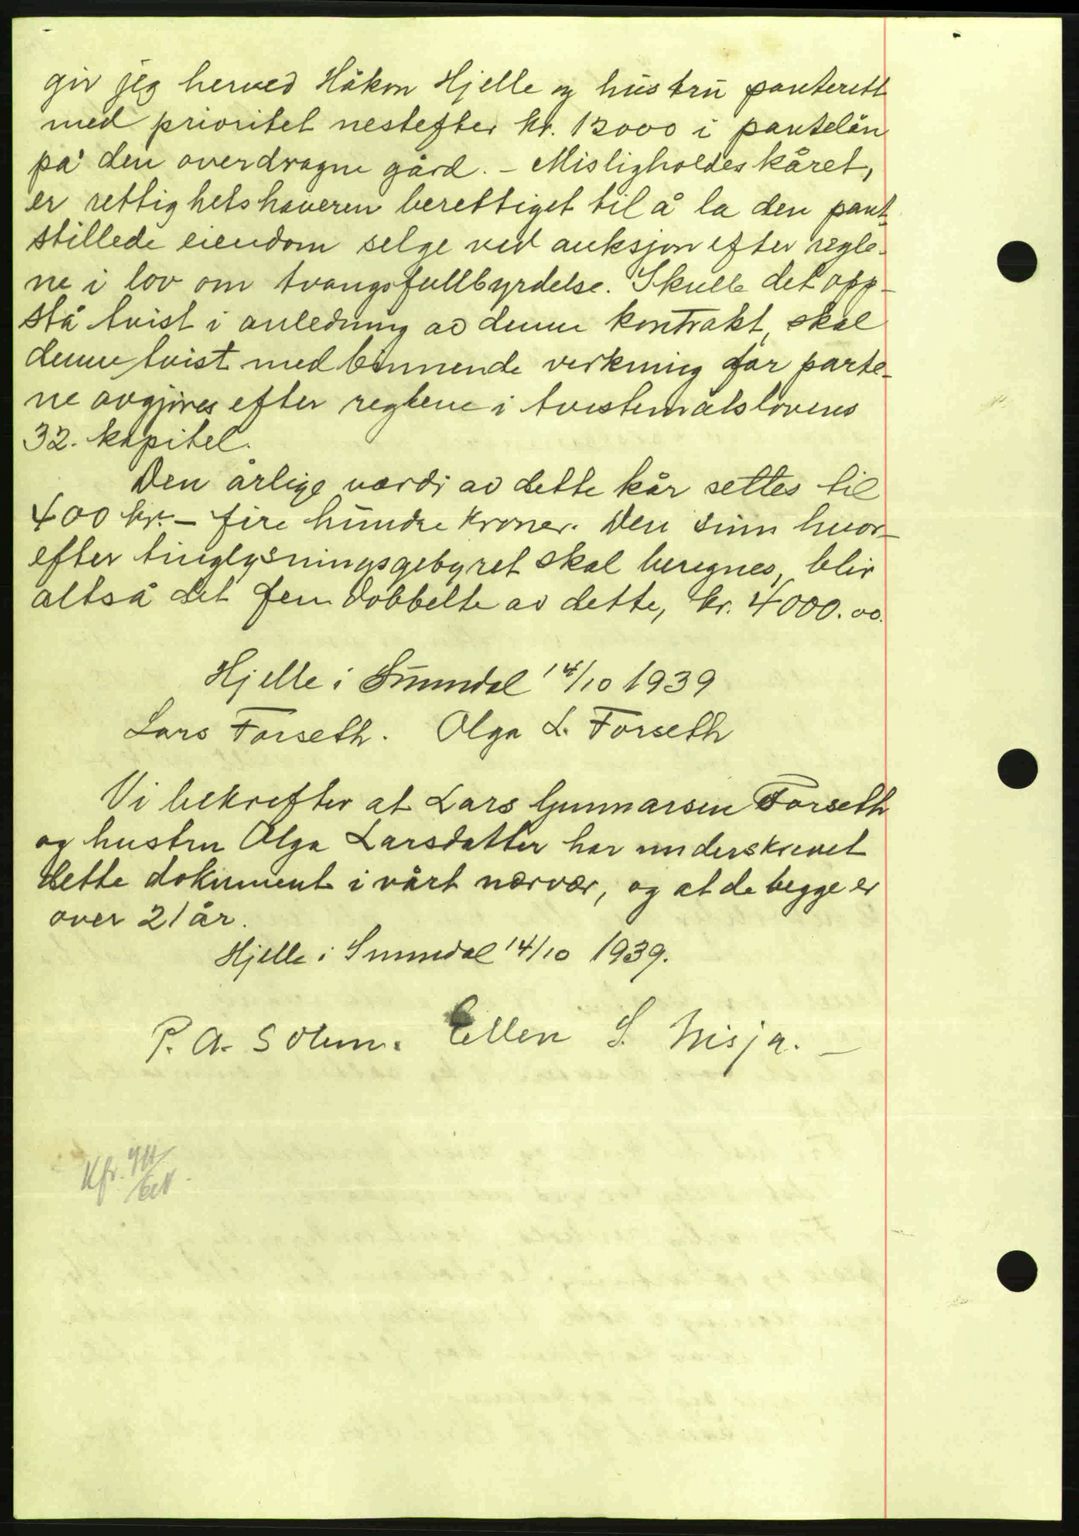 gir jeg herved Håkon Hjelle og hustru panterett
med prioritet nestefter kr. 12000 i pantelån
på den overdragne gård. - Misligholdes kåret,
er rettighetshaveren berettiget til å la den pant-
stillede eiendom selge ved auksjon efter regle-
ne i lov om tvangsfullbyrdelse. Skulle det opp-
stå tvist i anledning av denne kontrakt, skal
denne tvist med binnende verkning for parte-
ne avgjøres efter reglene i tvistemålslovens
32. kapitel.
Den årlige værdi av dette kår settes til
400 kr. - fire hundre kroner. Den sum hvor-
efter tinglysningsgebyret skal beregnes, blir
altså det fem dobbelte av dette, kr. 4000.00.
Hjelle i Sunndal 14/10 1939
Lars Forseth. Olga L. Forseth
Vi bekrefter at Lars Gunnarsen Forseth
og hustru Olga Larsdatter har underskrevet
dette dokument i vårt nærvær, og at de begge er
over 21 år.
Hjelle i Sunndal 14/10 1939.
P. A. Solem. Ellen S. Nisja. -
Kfr.